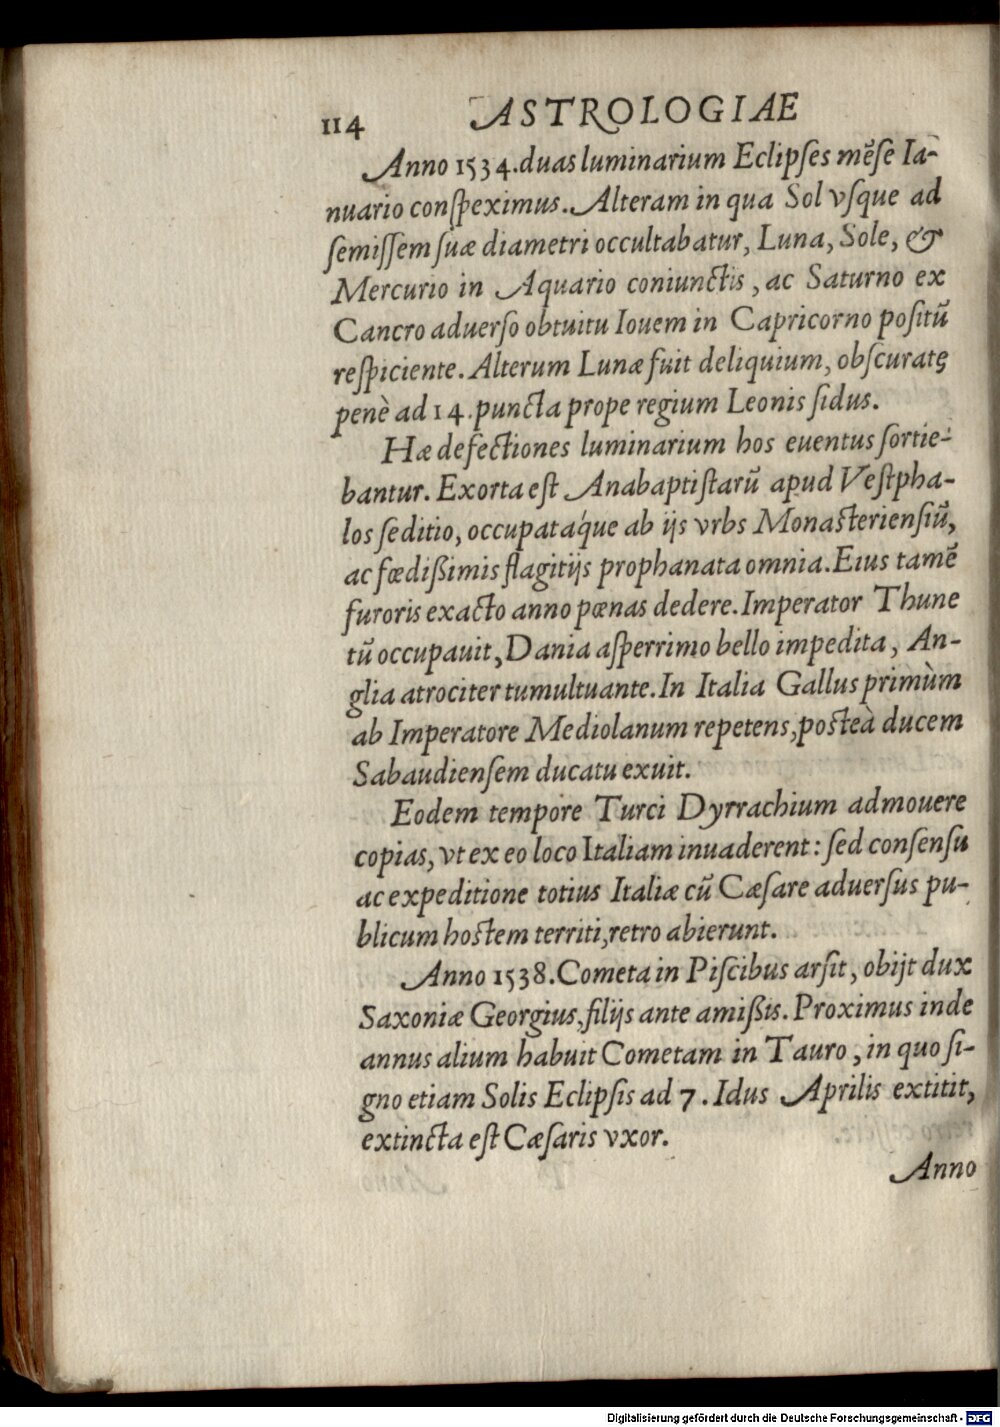 114 ASTROLOGIAE
Anno 1534. duas luminarium Eclipſes mẽſe Ia-
nuario conſpeximus. Alteram in qua Sol vſque ad
ſemiſſem ſuæ diametri occultabatur, Luna, Sole, &
Mercurio in Aquario coniunctis, ac Saturno ex
Cancro aduerſo obtuitu Iouem in Capricorno poſitũ
reſpiciente. Alterum Lunæ fuit deliquium, obſcuratę
penè ad 14. puncta prope regium Leonis ſidus.
Hæ defectiones luminarium hos euentus ſortie-
bantur. Exorta eſt Anabaptiſtarũ apud Veſtpha-
los ſeditio, occupatáque ab ijs vrbs Monaſterienſiũ,
ac fœdißimis flagitijs prophanata omnia. Eius tamẽ
furoris exacto anno pœnas dedere. Imperator Thune
tũ occupauit, Dania aſperrimo bello impedita, An-
glia atrociter tumultuante. In Italia Gallus primùm
ab Imperatore Mediolanum repetens, poſteà ducem
Sabaudienſem ducatu exuit.
Eodem tempore Turci Dyrrachium admouere
copias, vt ex eo loco Italiam inuaderent: ſed conſenſu
ac expeditione totius Italiæ cũ Cæſare aduerſus pu-
blicum hoſtem territi, retro abierunt.
Anno 1538. Cometa in Piſcibus arſit, obijt dux
Saxoniæ Georgius, filijs ante amißis. Proximus inde
annus alium habuit Cometam in Tauro, in quo ſi-
gno etiam Solis Eclipſis ad 7. Idus Aprilis extitit,
extincta eſt Cæſaris vxor.
Anno
Digitalisierung gefördert durch die Deutsche Forschungsgemeinschaft - DFG